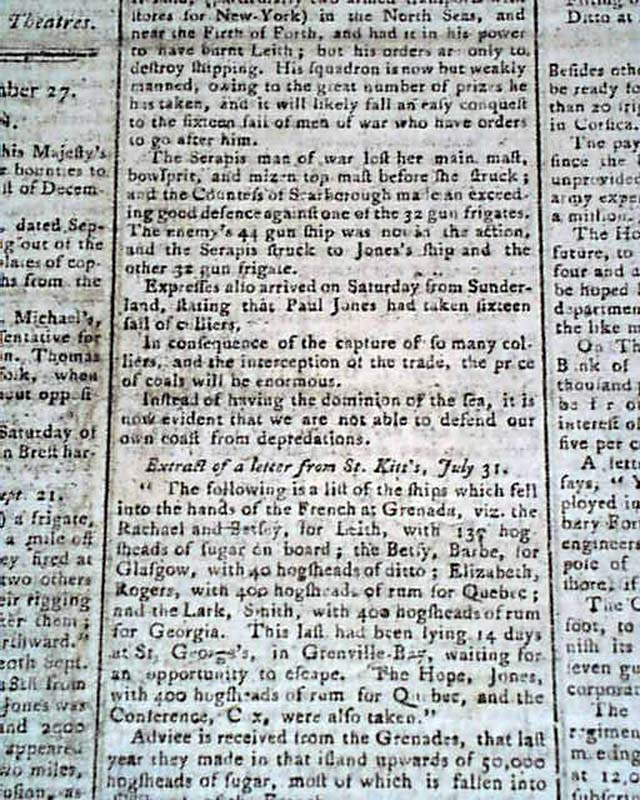 Theatres.
mber 27.
his Majeſty's
bounties to
ſt of Decem-
, dated Sep-
ng out of the
plates of cop-
hs from the
. Michael's,
ſentative for
n. Thomas
folk, when
out oppoſi-
Saturday of
n Breſt har-
ept. 21.
) a frigate,
a mile off
ey fired at
two others
eir rigging
ker them ;
rthward."
Sept.
from
Jones was
and 2000
appeared
two miles,
ſtores for New-York) in the North Seas, and
near the Firth of Forth, and had it in his power
to have burnt Leith ; but his orders are only to
deſtroy ſhipping. His ſquadron is now but weakly
manned, owing to the great number of prizes he
has taken, and it will likely fall an eaſy conqueſt
to the ſixteen ſail of men of war who have orders
to go after him.
The Serapis man of war loſt her main maſt,
bowſprit, and mizen top maſt before ſhe ſtruck ;
and the Counteſs of Scarborough made an exceed-
ing good defence againſt one of the 32 gun frigates.
The enemy's 44 gun ſhip was not in the action,
and the Serapis ſtruck to Jones's ſhip and the
other 32 gun frigate.
Expreſſes alſo arrived on Saturday from Sunder-
land, ſtating that Paul Jones had taken ſixteen
ſail of colliers,
In conſequence of the capture of ſo many col-
liers, and the interception of the trade, the price
of coals will be enormous.
Inſtead of having the dominion of the ſea, it is
now evident that we are not able to defend our
own coaſt from depredations.
Extract of a letter from St. Kitt's, July 31.
" The following is a liſt of the ſhips which fell
into the hands of the French at Grenada, viz. the
Rachael and Betſey, for Leith, with hog
ſheads of ſugar on board ; the Betſy, Barbe, for
Glaſgow, with 40 hogſheads of ditto ; Elizabeth,
Rogers, with 400 hogſheads of rum for Quebec ;
and the Lark, Smith, with 400 hogſheads of rum
for Georgia. This laſt had been lying 14 days
at St. George's, in Grenville-Bay, waiting for
an opportunity to eſcape. The Hope, Jones,
with 400 hogſheads of rum for Quebec, and the
Conference, Cox, were alſo taken."
Advice is received from the Grenades, that laſt
year they made in that iſland upwards of 50,000
hogſheads of ſugar, moſt of which is fallen into
Ditto at
Beſides othe
be ready fo
than 20
in Corſica.
The pay
ſince the
unprovided
army expen
a million.
The Ho
future, to
four and
be hoped
department
the like m
On Th
Bank of
thouſand
be for
intereſt of
five per c
A lett
ſays, "
ployed in
bary Fort
engineers
poſe of
ſhore, i
The
foot, to
niſh its
ſeven gu
corpora
The
regimen
meeting
at 12,0